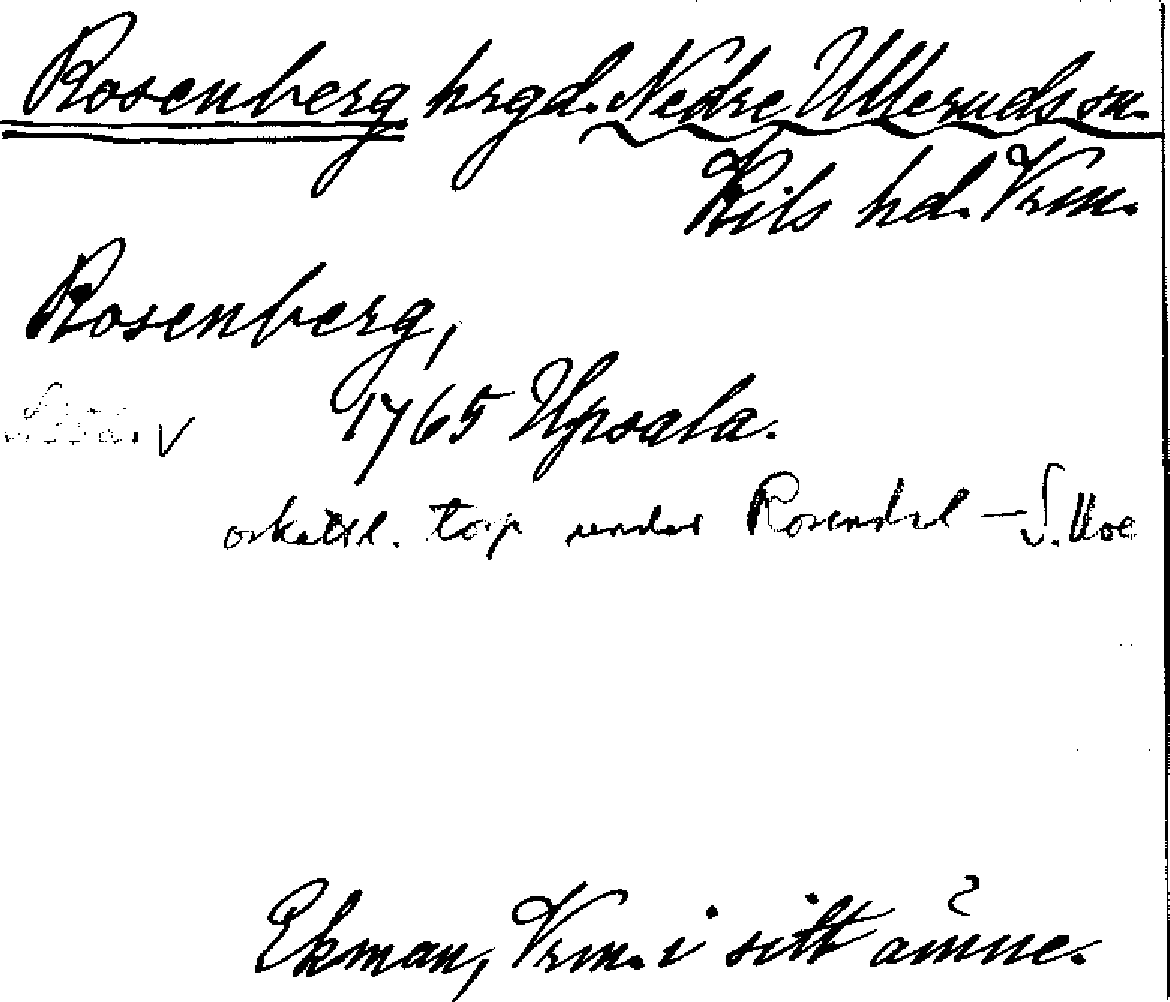 Rosenberg hrgd. Nedre Ulleruds sn.
Kils hd. Vrm.
Rosenberg,
1765 Upsala.
torp under Rosendal —
Ekman, Vrm. i sitt ämne.